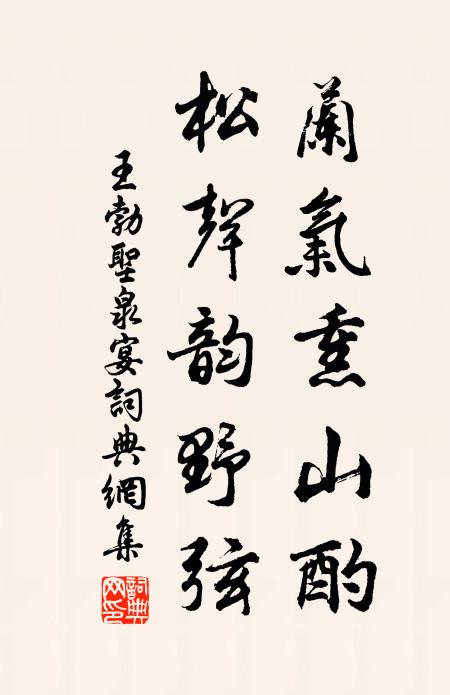 蘭氣熏山酌
松聲韵野弦
王勃聖泉宴詞典網集
詞典網印